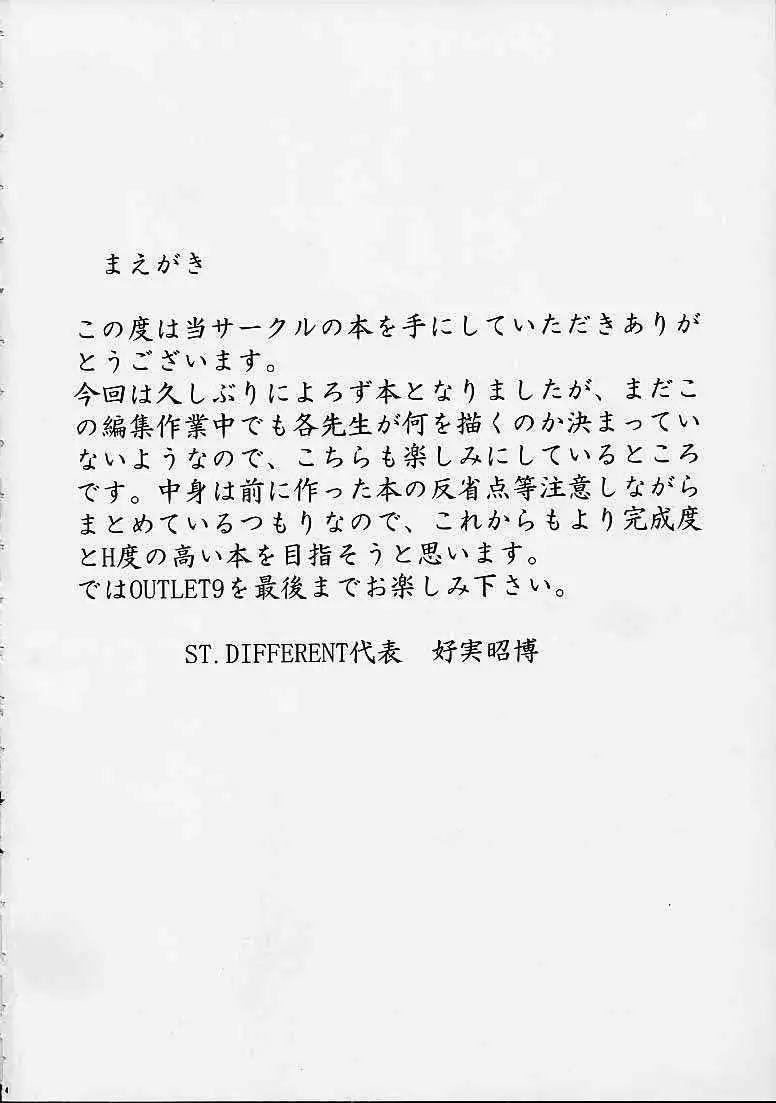 まえがき
この度は当サークルの本を手にしていただきありが
とうございます。
今回は久しぶりによろず本となりましたが、まだこ
の編集作業中でも各先生が何を描くのか決まってい
ないようなので、こちらも楽しみにしているところ
です。中身は前に作った本の反省点等注意しながら
まとめているつもりなので、これからもより完成度
とH度の高い本を目指そうと思います。
ではOUTLET9を最後までお楽しみ下さい。
ST.DIFFERENT代表　好実昭博
4